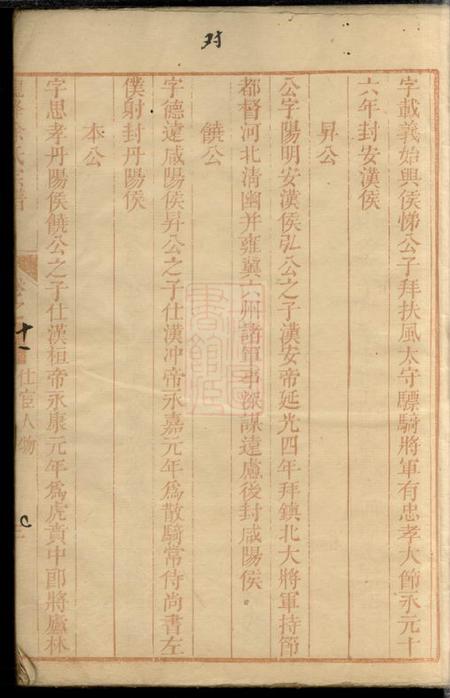 对
字載義始興侯悌公子拜扶風太守驃騎將軍有忠孝大節永元十
六年封安漢侯
昇公
公字陽明安漢侯弘公之子漢安帝延光四年拜鎮北大將軍持節
都督河北清幽并雍冀六州諸軍事深謀遠慮後封咸陽侯
饒公
字德遠咸陽侯昇公之子仕漢冲帝永嘉元年為散騎常侍尚書左
僕射封丹陽侯
本公
字思孝丹陽侯饒公之子仕漢桓帝永康元年為虎賁中郎將廬林
氏宗譜
卷之十一
仕宦人物